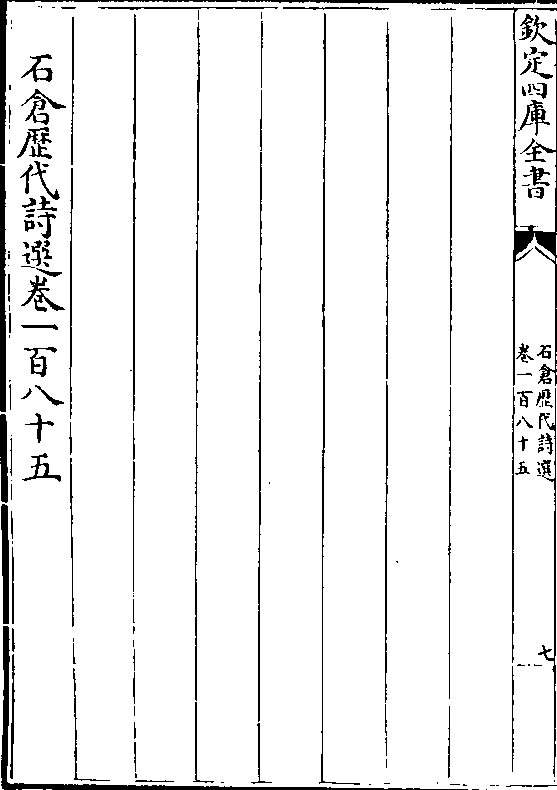 欽定四庫全書
石倉歴代詩選
卷一百八十五
七
石倉歴代詩選卷一百八十五